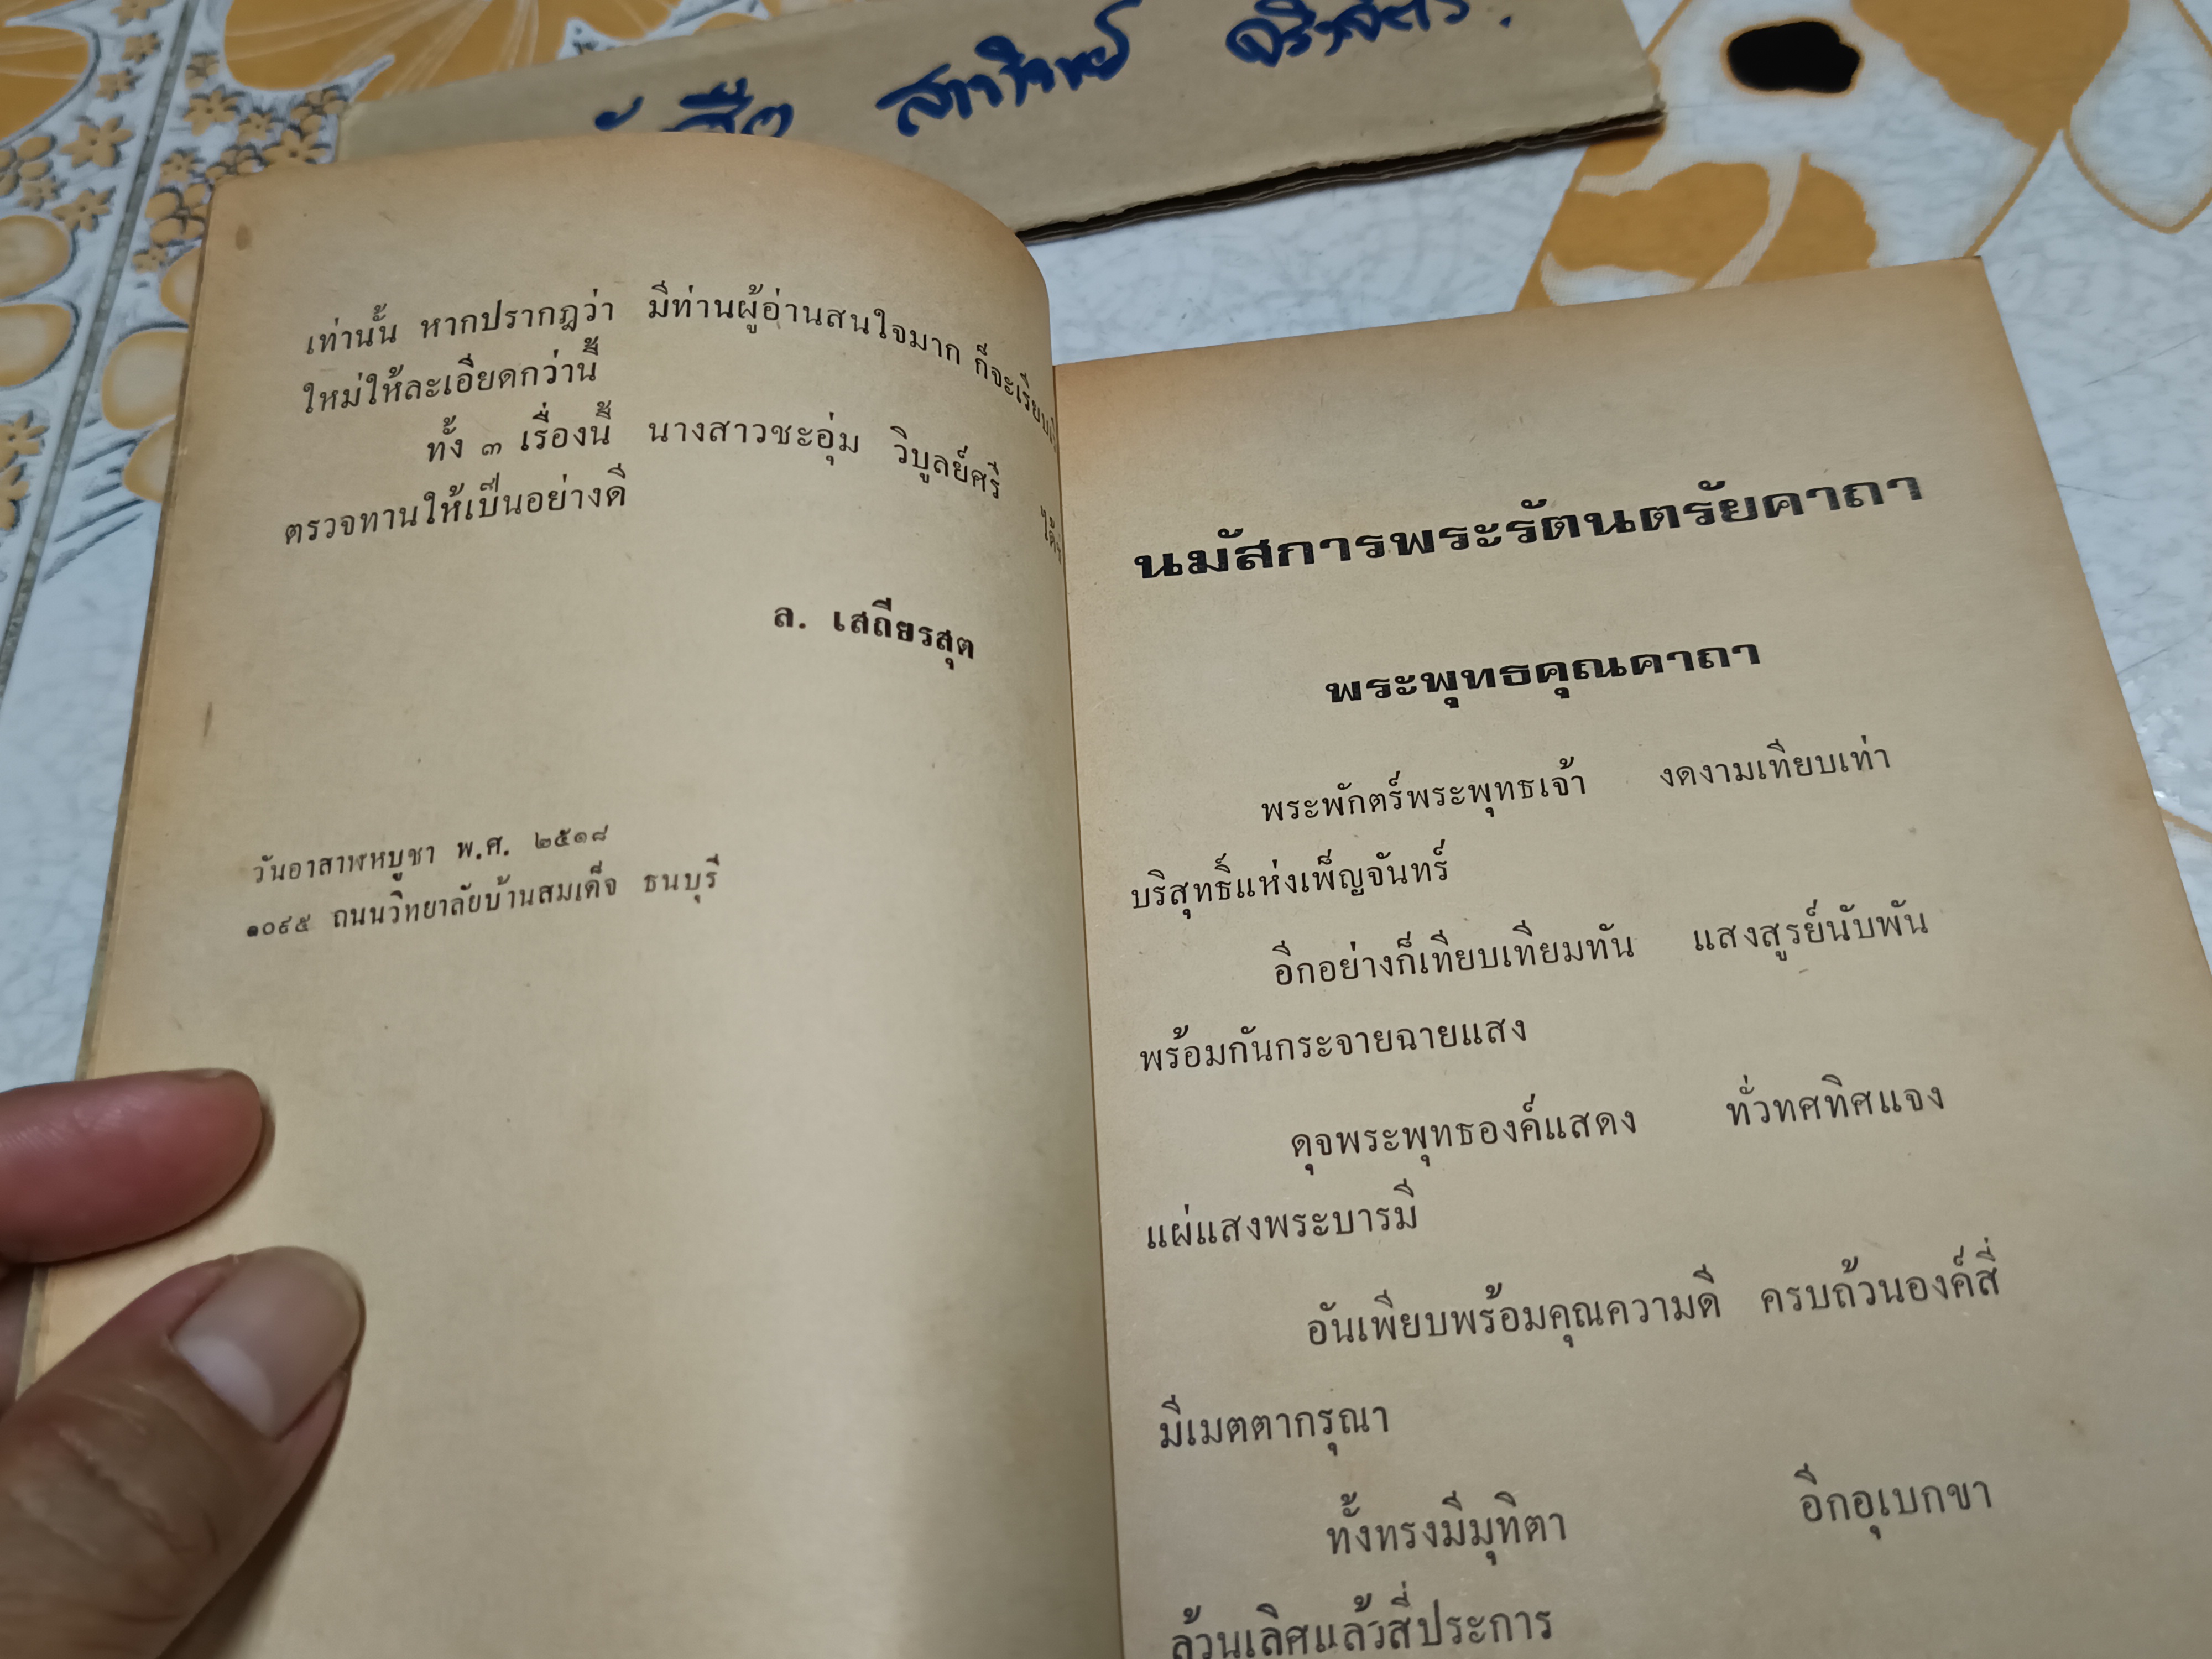 สาจกิจย์
เท่านั้น หากปรากฎว่า มีท่านผู้อ่านสนใจมาก ก็จะเรียบ
ใหม่ให้ละเอียดกว่านี้
ทั้ง ๓ เรื่องนี้ นางสาวชะอุ่ม วิบูลย์ศรี
ตรวจทานให้เป็นอย่างดี
ล. เสถียรสุต
วันอาสาฬหบูชา พ.ศ. ๒๕๑๘
๑๐๙๕ ถนนวิทยาลัยบ้านสมเด็จ ธนบุรี
นมัสการพระรัตนตรัยคาถา
พระพุทธคุณคาถา
พระพักตร์พระพุทธเจ้า งดงามเทียบเท่า
บริสุทธิ์แห่งเพ็ญจันทร์
อีกอย่างก็เทียบเทียมทัน แสงสูรย์นับพัน
พร้อมกันกระจายฉายแสง
ดุจพระพุทธองค์แสดง ทั่วทศทิศแจง
แผ่แสงพระบารมี
อันเพียบพร้อมคุณความดี ครบถ้วนองค์สี่
มีเมตตากรุณา
ทั้งทรงมีมุทิตา อีกอุเบกขา
ล้วนเลิศแล้วสี่ประการ